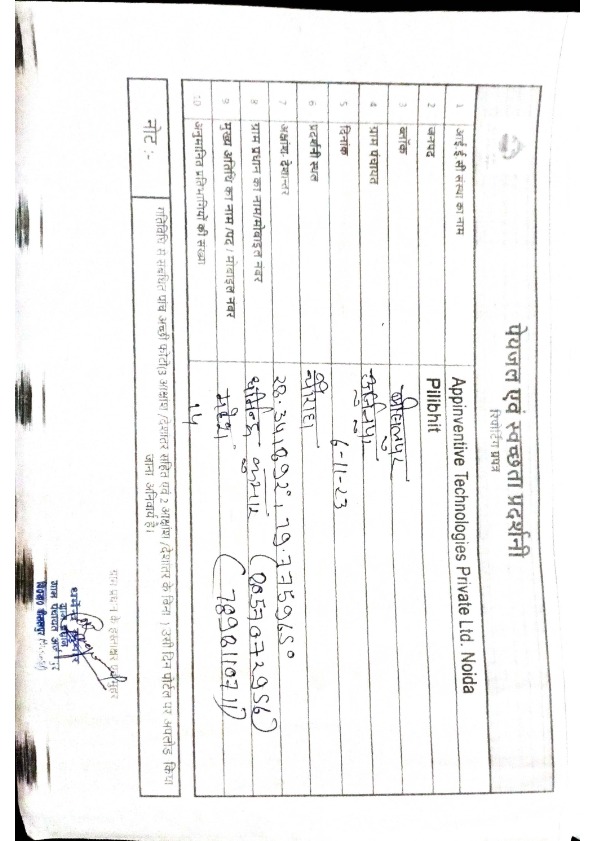 पेयजल एवं स्वच्छता प्रदर्शनी
रिपोर्टिंग प्रपत्र
1 आई ई सी संस्था का नाम Appinventive Technologies Private Ltd. Noida
2 जनपद Pilibhit
3 ब्लॉक बीसलपुर
4 ग्राम पंचायत अर्जुनपुर
5 दिनांक 6-11-23
6 प्रदर्शनी स्थल चौराहा
7 अक्षांश देशान्तर
8 ग्राम प्रधान का नाम/मोबाइल नंबर धर्मेन्द्र कुमार (8057072956)
9 मुख्य अतिथि का नाम /पद / मोबाइल नंबर (7898110711)
10 अनुमानित प्रतिभागियों की संख्या
नोट :- गतिविधि से संबंधित पांच अच्छी फोटो(3 अक्षांश /देशांतर सहित एवं 2 अक्षांश /देशांतर के बिना ) उसी दिन पोर्टल पर अपलोड किया
जाना अनिवार्य है।
ग्राम प्रधान के हस्ताक्षर एवं मुहर